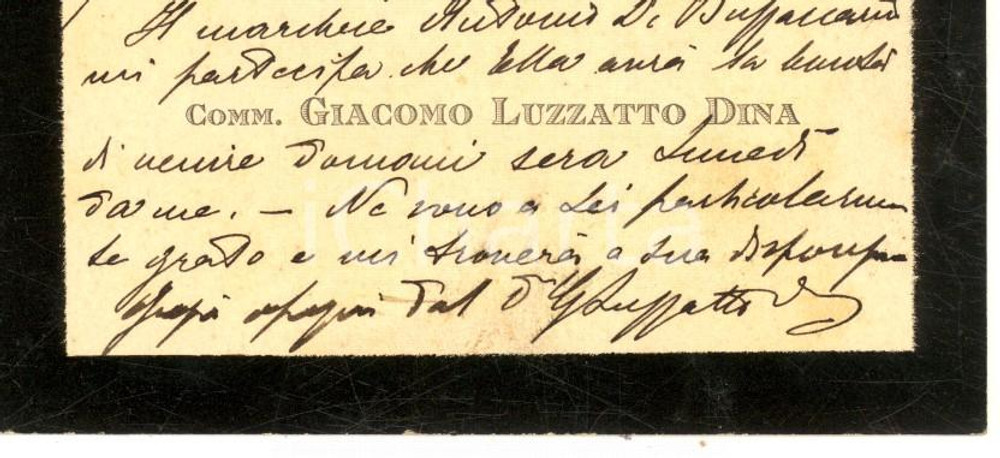 Il marchese Antonio De Buzzaccarini
mi partecipa che Ella avrà la bontà
COMM. GIACOMO LUZZATTO DINA
di venire domani sera Lunedì
da me. — Ne sono a Lei particolarmen
te grato e mi troverà a sua disposiz
dal D GLuzzatto D